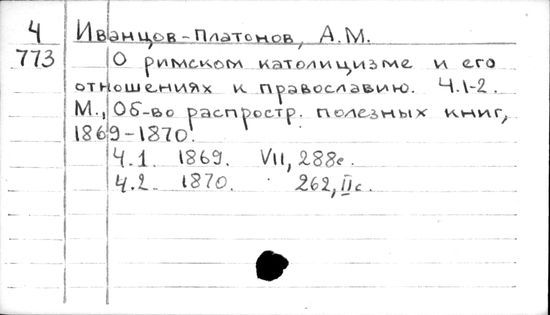 4 Иванцов-Платонов, А.М.
773 О римском католицизме и его
отношениях к православию. Ч.1-2.
М., Об-во распростр. полезных книг,
1869-1870.
Ч.1. 1869. VII, 288с.
Ч.2. 1870. 262, II с.